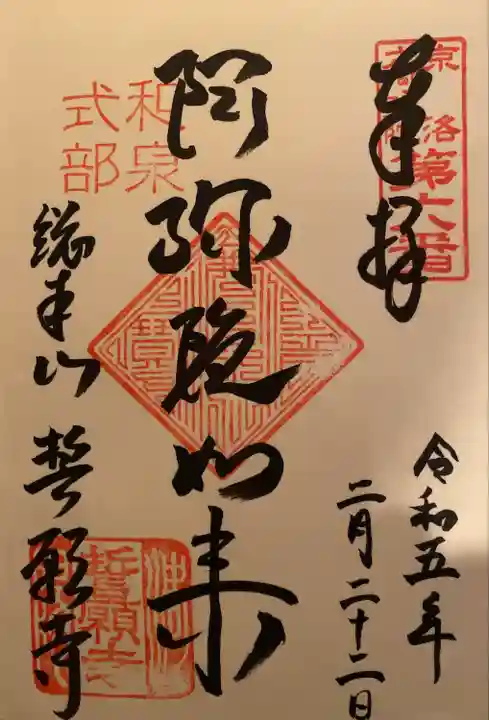 奉拝
京
洛
第六番
令和五年
二月二十二日
阿弥陀如来
和泉
式部
総本山 誓願寺
誓願寺